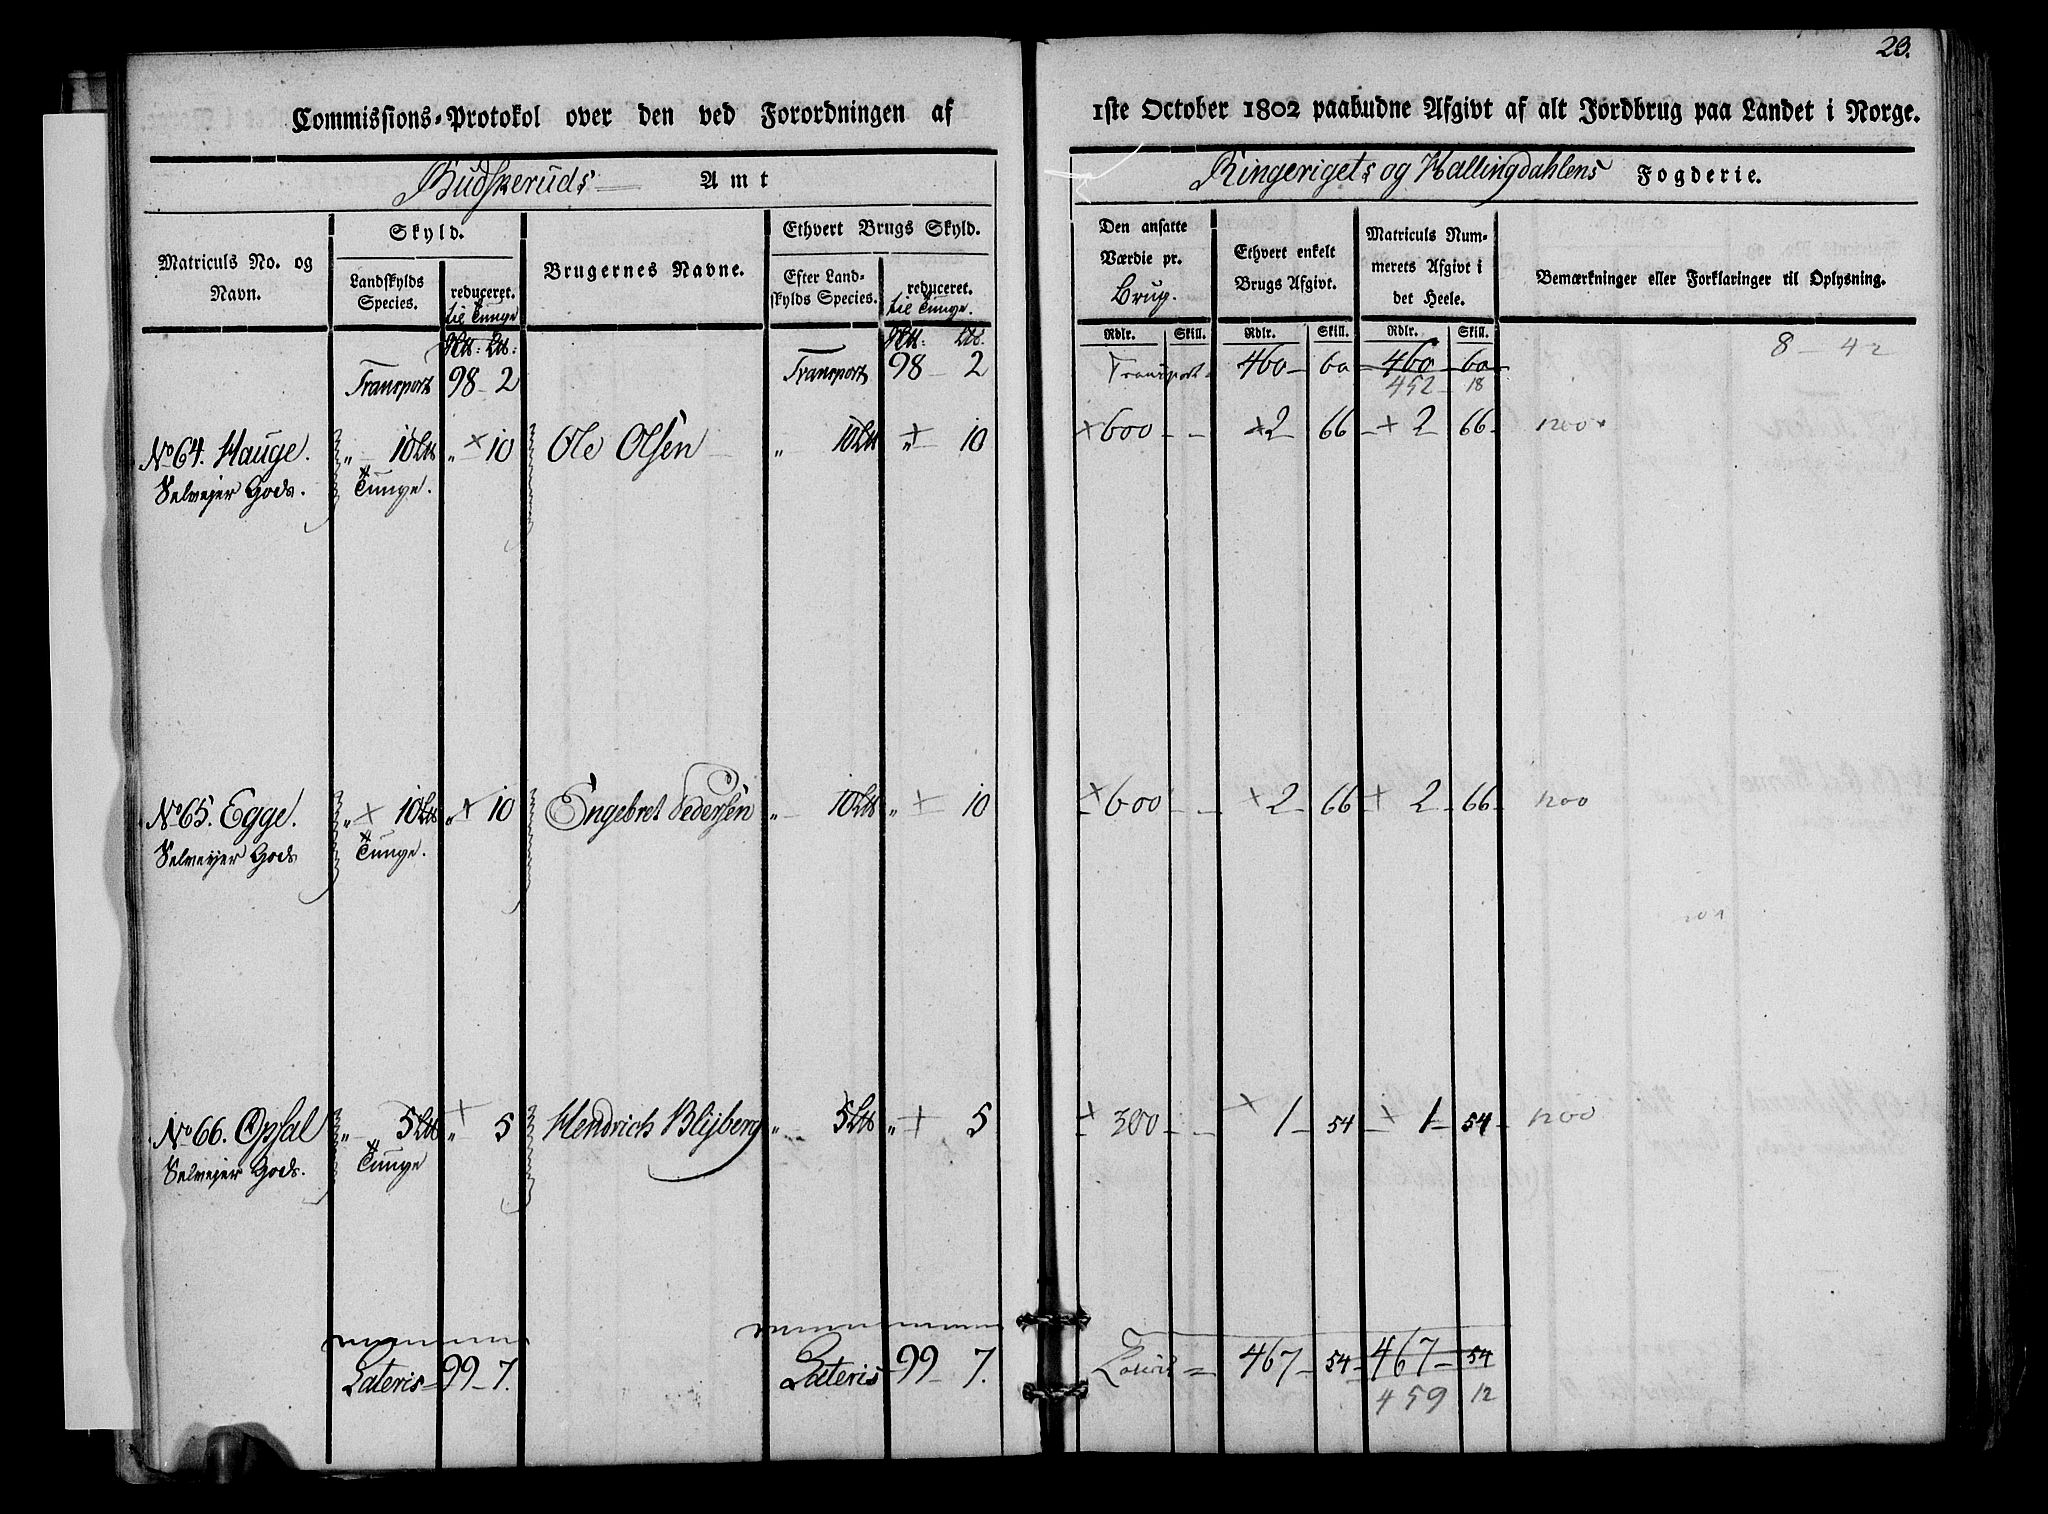 23.
Commissions-Protokol over den ved Forordningen af 1ste October 1802 paabudne Afgivt af alt Jordbrug paa Landet i Norge.
Budskeruds Amt Ringerigets og Hallingdahlens Fogderie.
Matriculs No. og Navn. Skyld. Landskylds Species. reduceret. til Tunge Brugernes Navne. Ethvert Brugs Skyld. Efter Landskylds Species. reduceret. til Tunge. Den ansatte Værdie pr. Brug. Ethvert enkelt Brugs Afgivt. Matriculs Nummerets Afgivt i det Heele. Bemærkninger eller Forklaringer til Oplysning.
Rdlr. Skill. Rdlr. Skill. Rdlr. Skill.
Transport 98 - 2 Transport 98 - 2 Transport 460 - 60 - 460 - 60 8 - 42
452 - 18
No 64. Hauge. " 10 Lb " × 10 Ole Olsen " 10 Lb " + 10 × 600 - - × 2 66 - × 2 66 - 1200
Selvejer Gods. Tunge.
No 65. Egge. " × 10 Lb " × 10 Engebret Pedersen " 10 Lb " + 10 × 600 - - × 2 - 66 × 2 - 66 - 1200
Selvejer Gods Tunge.
201
No 66. Opsal " 5 Lb " + 5 Hendrich Blijberg " 5 Lb " + 5 + 300 - - × 1 - 54 - × 1 - 54 - 1200
Selvejer Gods. Tunge
Lateris 99 - 7. Lateris 99 - 7. Lateris 467 - 54 - 467 - 54
459 12